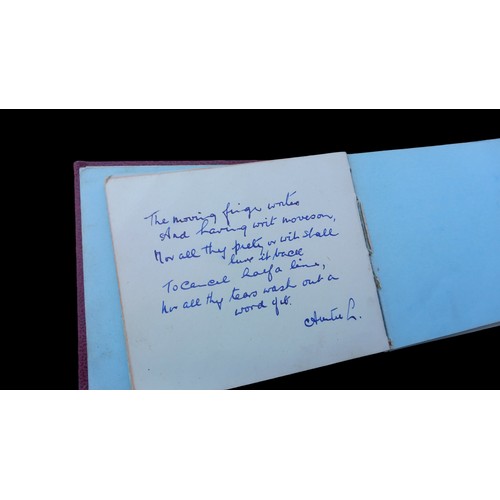 The moving finger writes
And having writ moves on,
Nor all thy piety or wit shall
lure it back
To cancel half a line,
Nor all thy tears wash out a
word of it.
Auntie L.